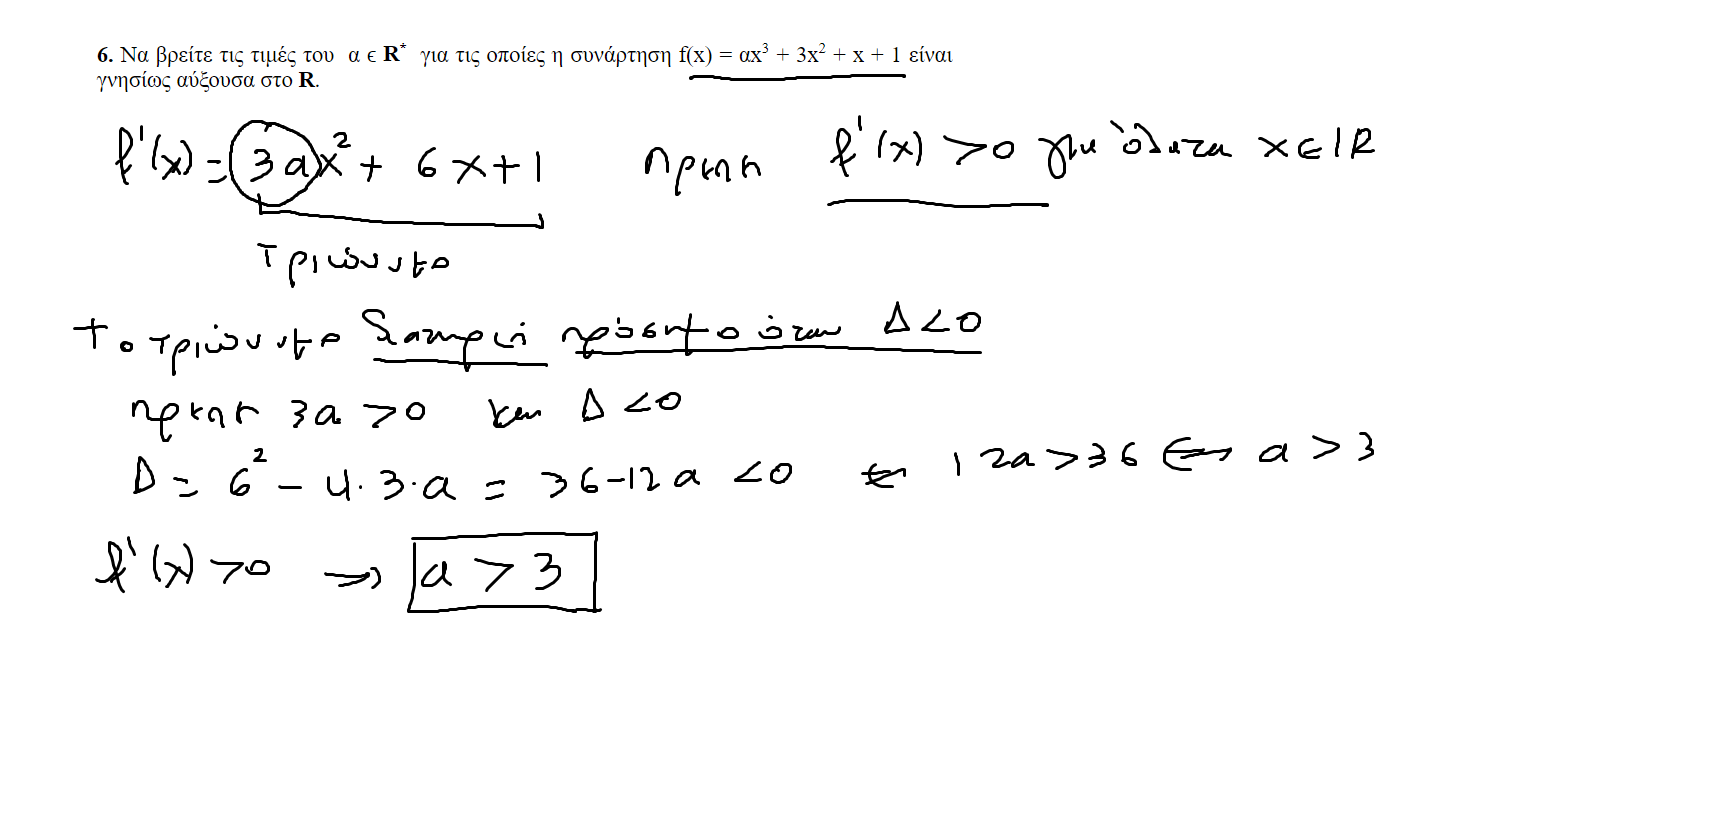 6. Να βρείτε τις τιμές του α ϵ R* για τις οποίες η συνάρτηση f(x) = αx³ + 3x² + x + 1 είναι
γνησίως αύξουσα στο R.
f'(x) = 3αx² + 6x + 1 πρέπει f'(x) > 0 για όλα τα x ∈ ℝ
Τριώνυμο
Το τριώνυμο διατηρεί πρόσημο όταν Δ < 0
πρέπει 3α > 0 και Δ < 0
Δ = 6² - 4·3·α = 36 - 12α < 0 ⇔ 12α > 36 ⇔ α > 3
f'(x) > 0 ⇒ α > 3